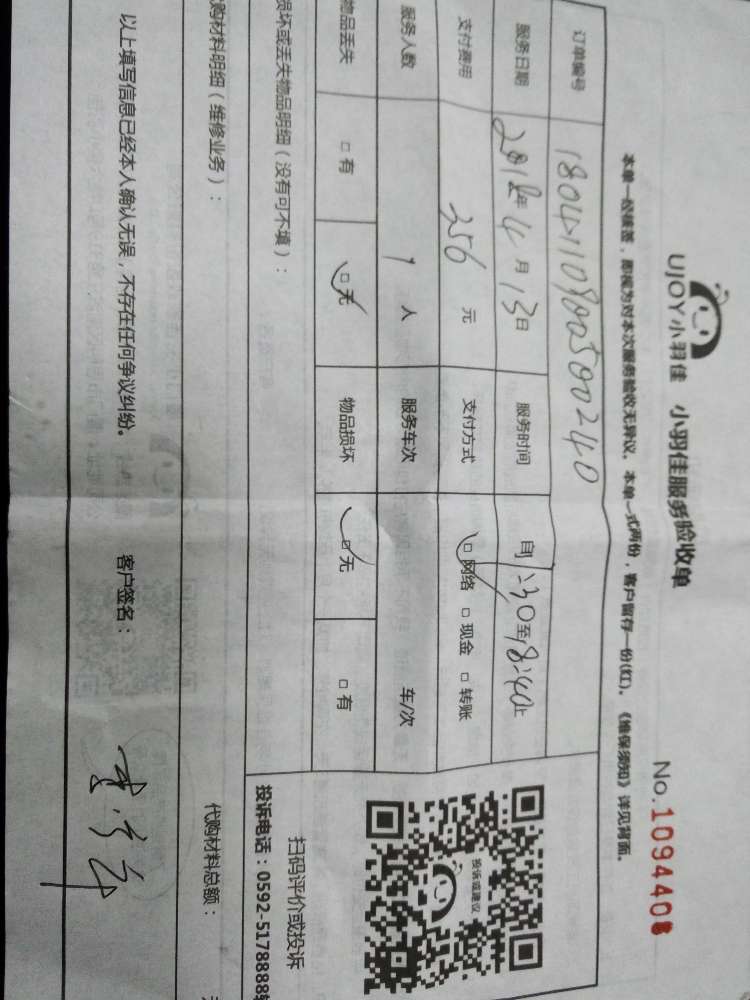 UJOY小羽佳 小羽佳服务验收单
No.1094408
本单一经接签，即视为对本次服务验收无异议。本单一式两份，客户留存一份(红)。《维保须知》详见背面。
订单编号 180411080050 0240
服务日期 2018年4月13日 服务时间 自1:30至18:40止
支付费用 356元 支付方式 □网络 □现金 □转账
服务人数 1人 服务车次 车/次
物品丢失 □有 □无 物品损坏 □无 □有
投诉或建议
扫码评价或投诉
损坏或丢失物品明细（没有可不填）：
投诉电话：0592-5178888
购材料明细（维修业务）：
代购材料总额：
以上填写信息已经本人确认无误，不存在任何争议纠纷。 客户签名：